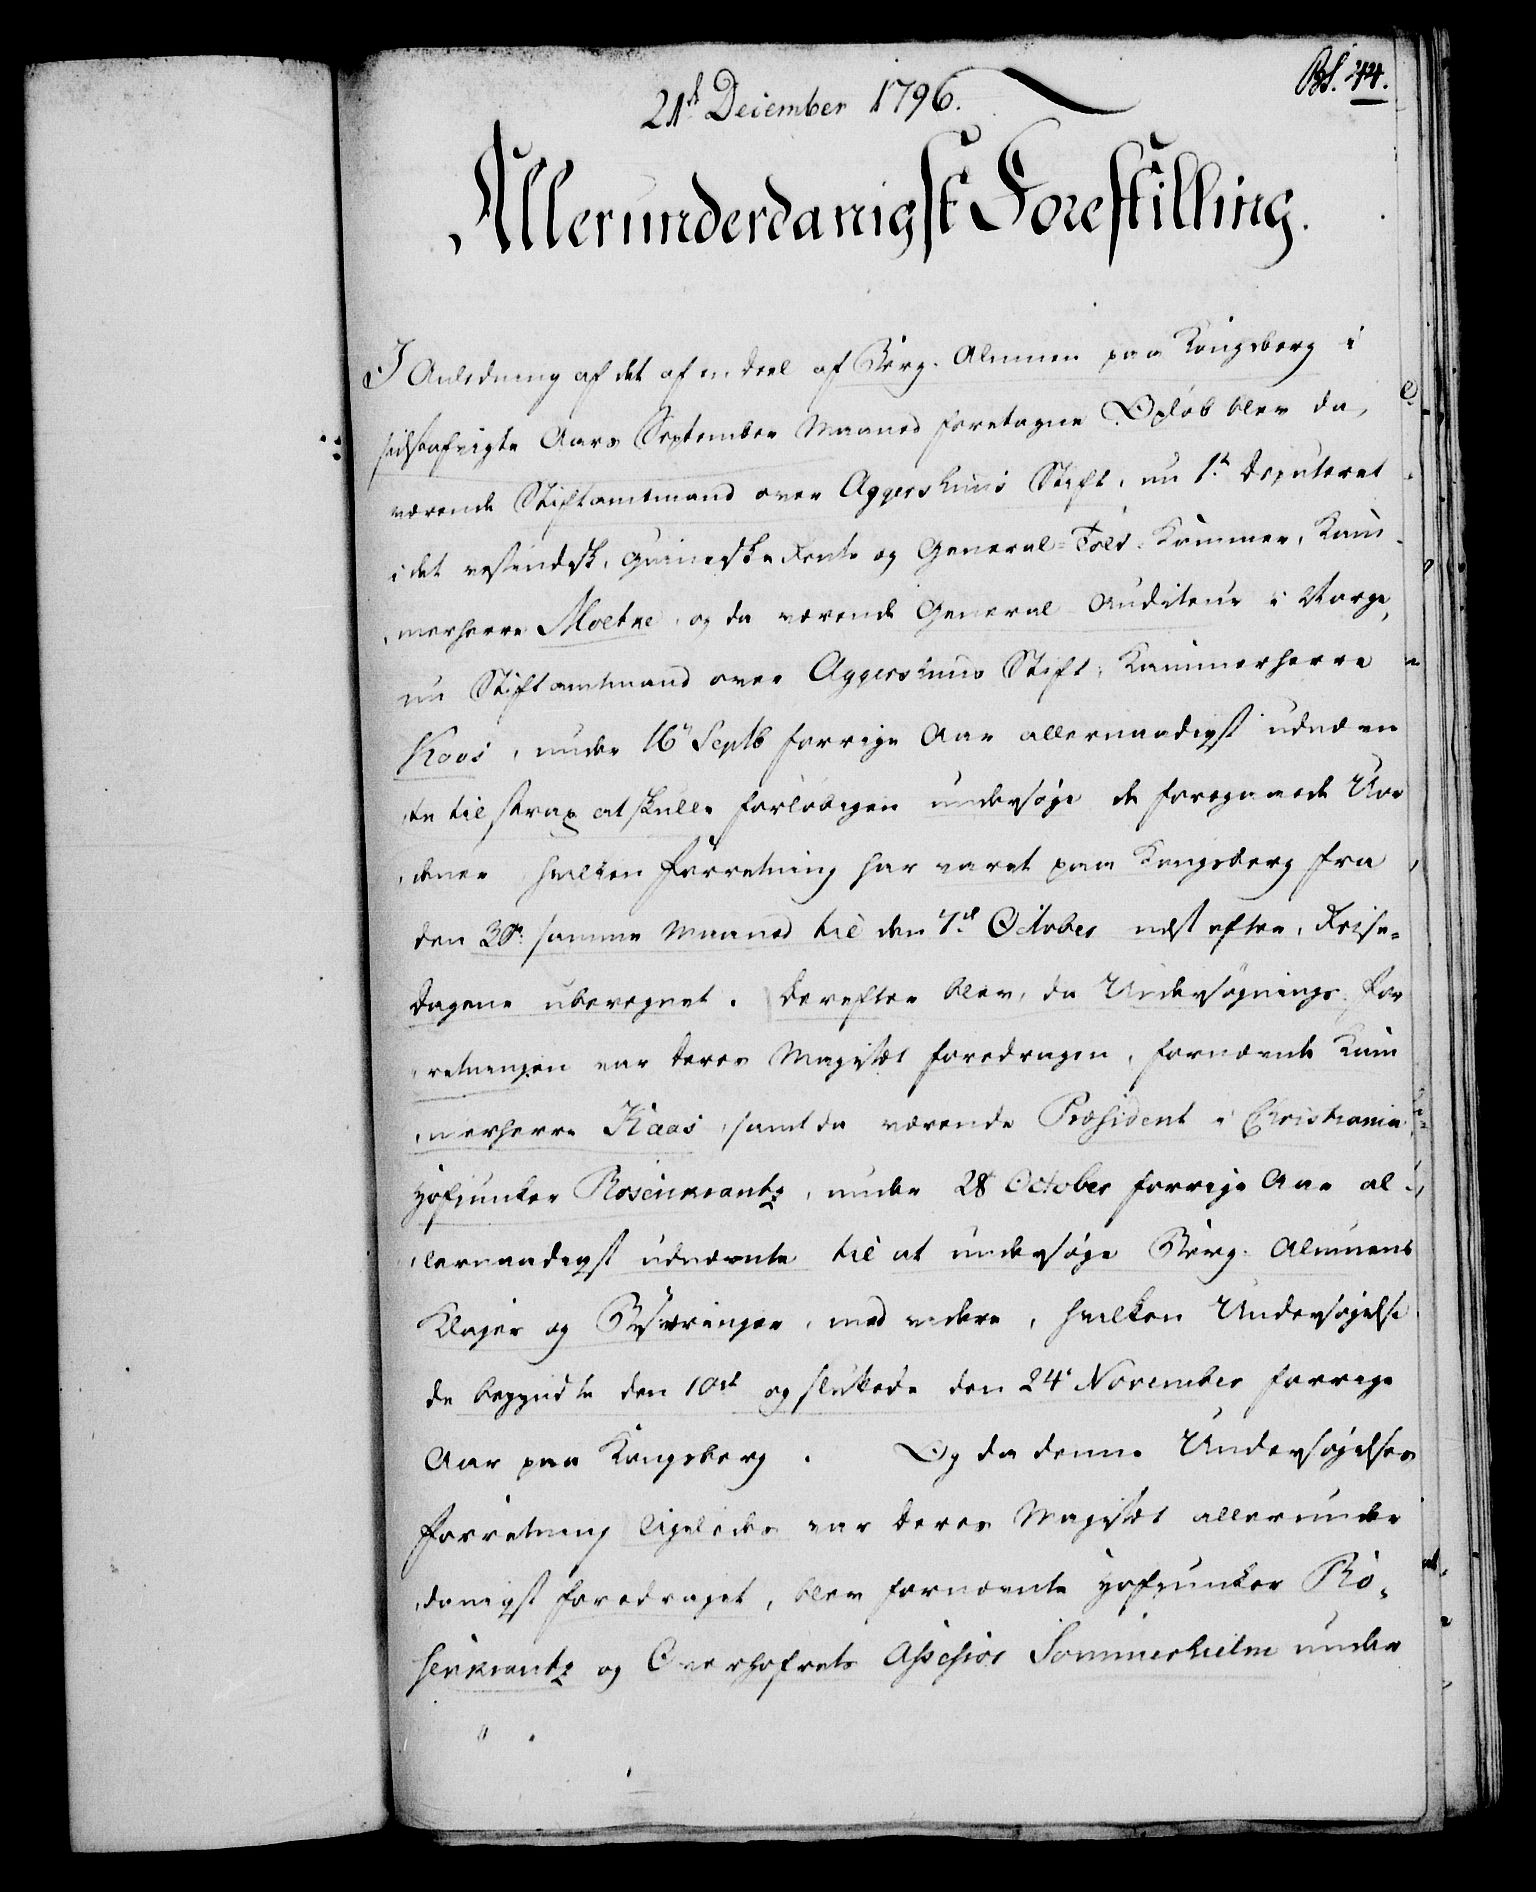 Bl. 44.
21de December 1796.
Allerunderdanigst Forestilling.
I Anledning af det af en deel af Berg-Almuen paa Kongsberg i
sidstafvigte Aars September Maaned foretagne Opløb blev da,
værende Stiftamtmand over Aggershuus Stift, nu 1te Deputeret
i det vestindisk, Guineiske Rente og General-Told-Kammer, Kam
merherre Moltke, og da værende General Auditeur i Norge,
nu Stiftamtmand over Aggershuus Stift, Kammerherre
Kaas, under 16 Septb forrige Aar allernaadigst udnævn
te til strax at skulle forløbigen undersøge de foregaaede Uor
dener hvilken Forretning har varet paa Kongsberg fra
den 30te samme Maaned til den 7de October næst efter, Reise-
Dagene uberegnet. Derefter blev, da Undersøgnings-For
retningen var Deres Majestæt foredragen, fornævnte Kam
merherre Kaas, samt da værende Præsident i Christiania
Hofjunker Rosenkrantz, under 28 October forrige Aar al-
lernaadigst udnævnte til at undersøge Berg-Almuens
Klager og Besværinger, med videre, hvilken Undersøgelse
de begyndte den 10de og sluttede den 24 November forrige
Aar paa Kongsberg. Og da denne Undersøgelses
Forretning ligeledes var Deres Majestæt allerunder
danigst foredraget, blev fornævnte Hofjunker Ro-
senkrantz og Overhofrets Assessor Sommerhielm under